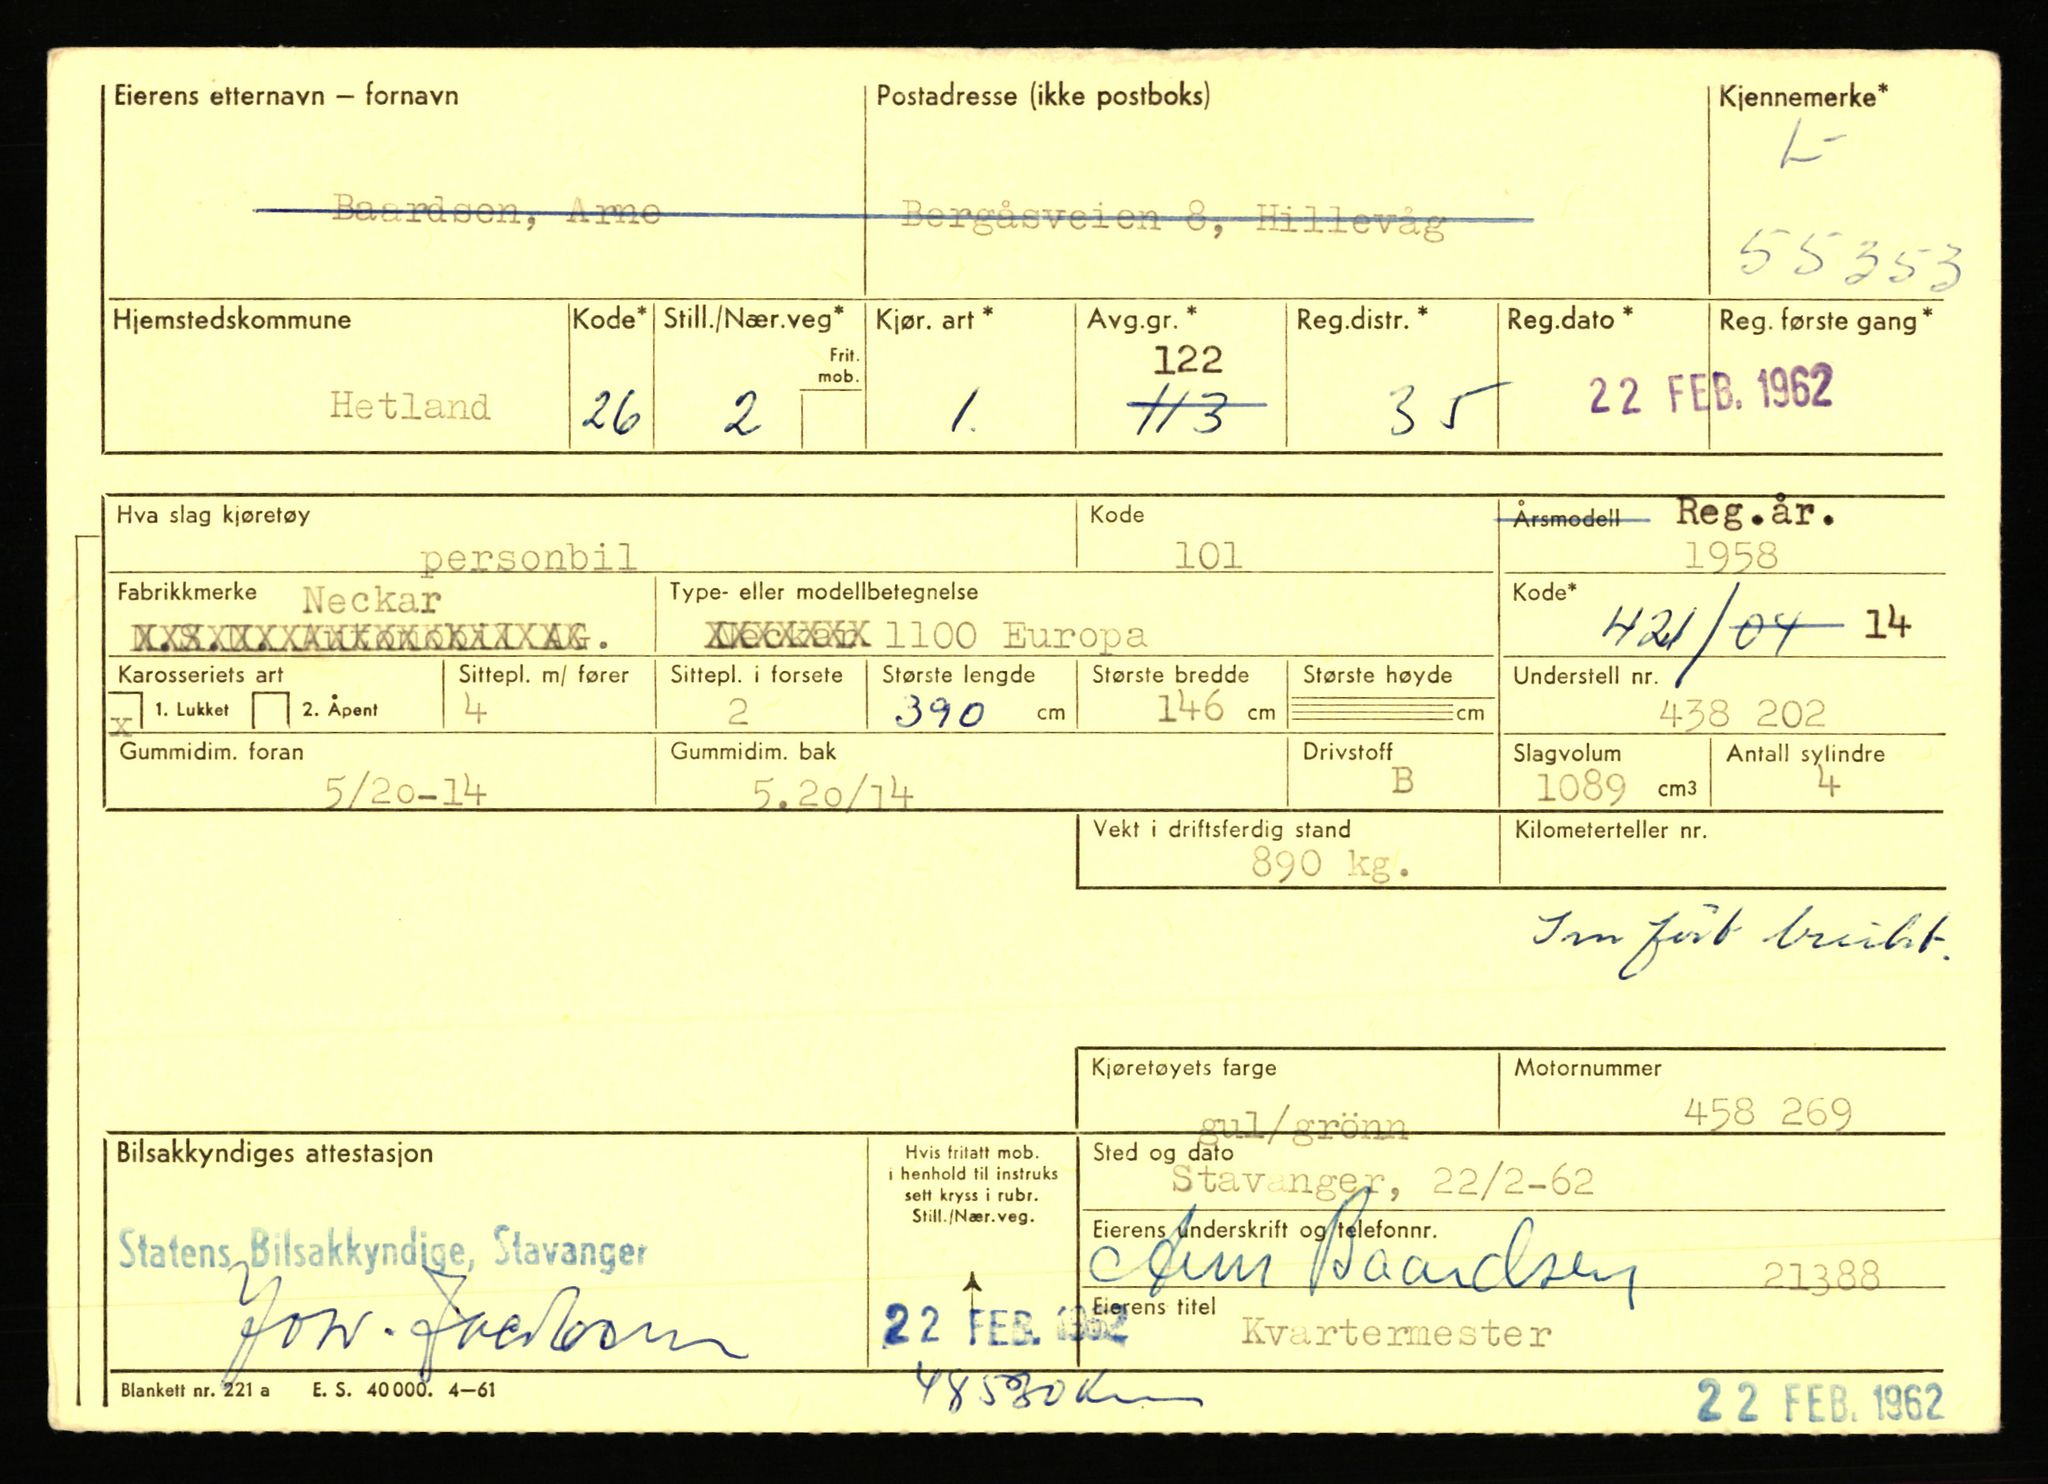 Eierens etternavn – fornavn Postadresse (ikke postboks) Kjennemerke*
L-
Baardsen, Arne Bergåsveien 8, Hillevåg
55353
Hjemstedskommune Kode* Still./Nær.veg* Kjør. art* Avg.gr.* Reg.distr.* Reg.dato* Reg. første gang*
Frit. mob. 122
Hetland 26 2 1. 113 35 22 FEB. 1962
Hva slag kjøretøy Kode Årsmodell Reg.år.
personbil 101 1958
Fabrikkmerke Neckar Type- eller modellbetegnelse Kode*
N.S.U. Automobil AG. Neckar 1100 Europa 421/04 14
Karosseriets art Sittepl. m/ fører Sittepl. i forsete Største lengde Største bredde Største høyde Understell nr.
x 1. Lukket 2. Åpent 4 2 390 cm 146 cm cm 438 202
Gummidim. foran Gummidim. bak Drivstoff Slagvolum Antall sylindre
5/20-14 5.20/14 B 1089 cm3 4
Vekt i driftsferdig stand Kilometerteller nr.
890 kg.
Innført brukt.
Kjøretøyets farge Motornummer
gul/grönn 458 269
Bilsakkyndiges attestasjon
Hvis fritatt mob.
i henhold til instruks
sett kryss i rubr.
Still./Nær.veg.
Sted og dato
Stavanger, 22/2-62
Statens Bilsakkyndige, Stavanger
Eierens underskrift og telefonnr.
Arne Baardsen 21388
22 FEB. 1962
Eierens titel
Kvartermester
Blankett nr. 221 a E. S. 40000. 4–61
48530 Km
22 FEB. 1962